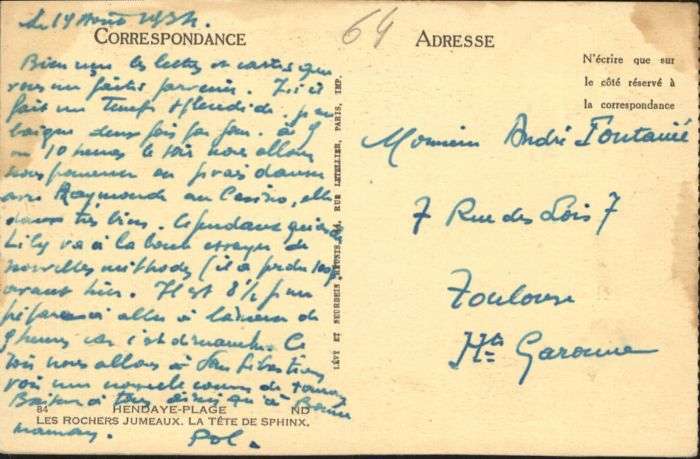 le 19 Août 1934.
64
CORRESPONDANCE
ADRESSE
N'écrire que sur
le côté réservé à
la correspondance
Bien reçu les lettres et cartes que
vous me faites parvenir. Ici il
fait un temps splendide. je me
baigne deux fois par jour. à 9
ou 10 heures le soir nous allons
nous promener ou je vais danser
avec Raymonde au Casino, elle
danse très bien. Cependant que
Lily va à la boule essayer de
nouvelles méthodes (il a perdu
avant hier. Il est 8½ je me
prépare à aller à la messe de
9 heures car c'est dimanche. Ce
soir nous allons à San Sébastien
voir une nouvelle course de
Baisers à tous ainsi qu'à Bonne
maman. Pol.
LÉVY ET NEURDEIN RÉUNIS, 44, RUE LETELLIER, PARIS, IMP.
Monsieur André
7 Rue des Lois 7
Toulouse
Hte Garonne
84 HENDAYE-PLAGE ND
LES ROCHERS JUMEAUX. LA TÊTE DE SPHINX.